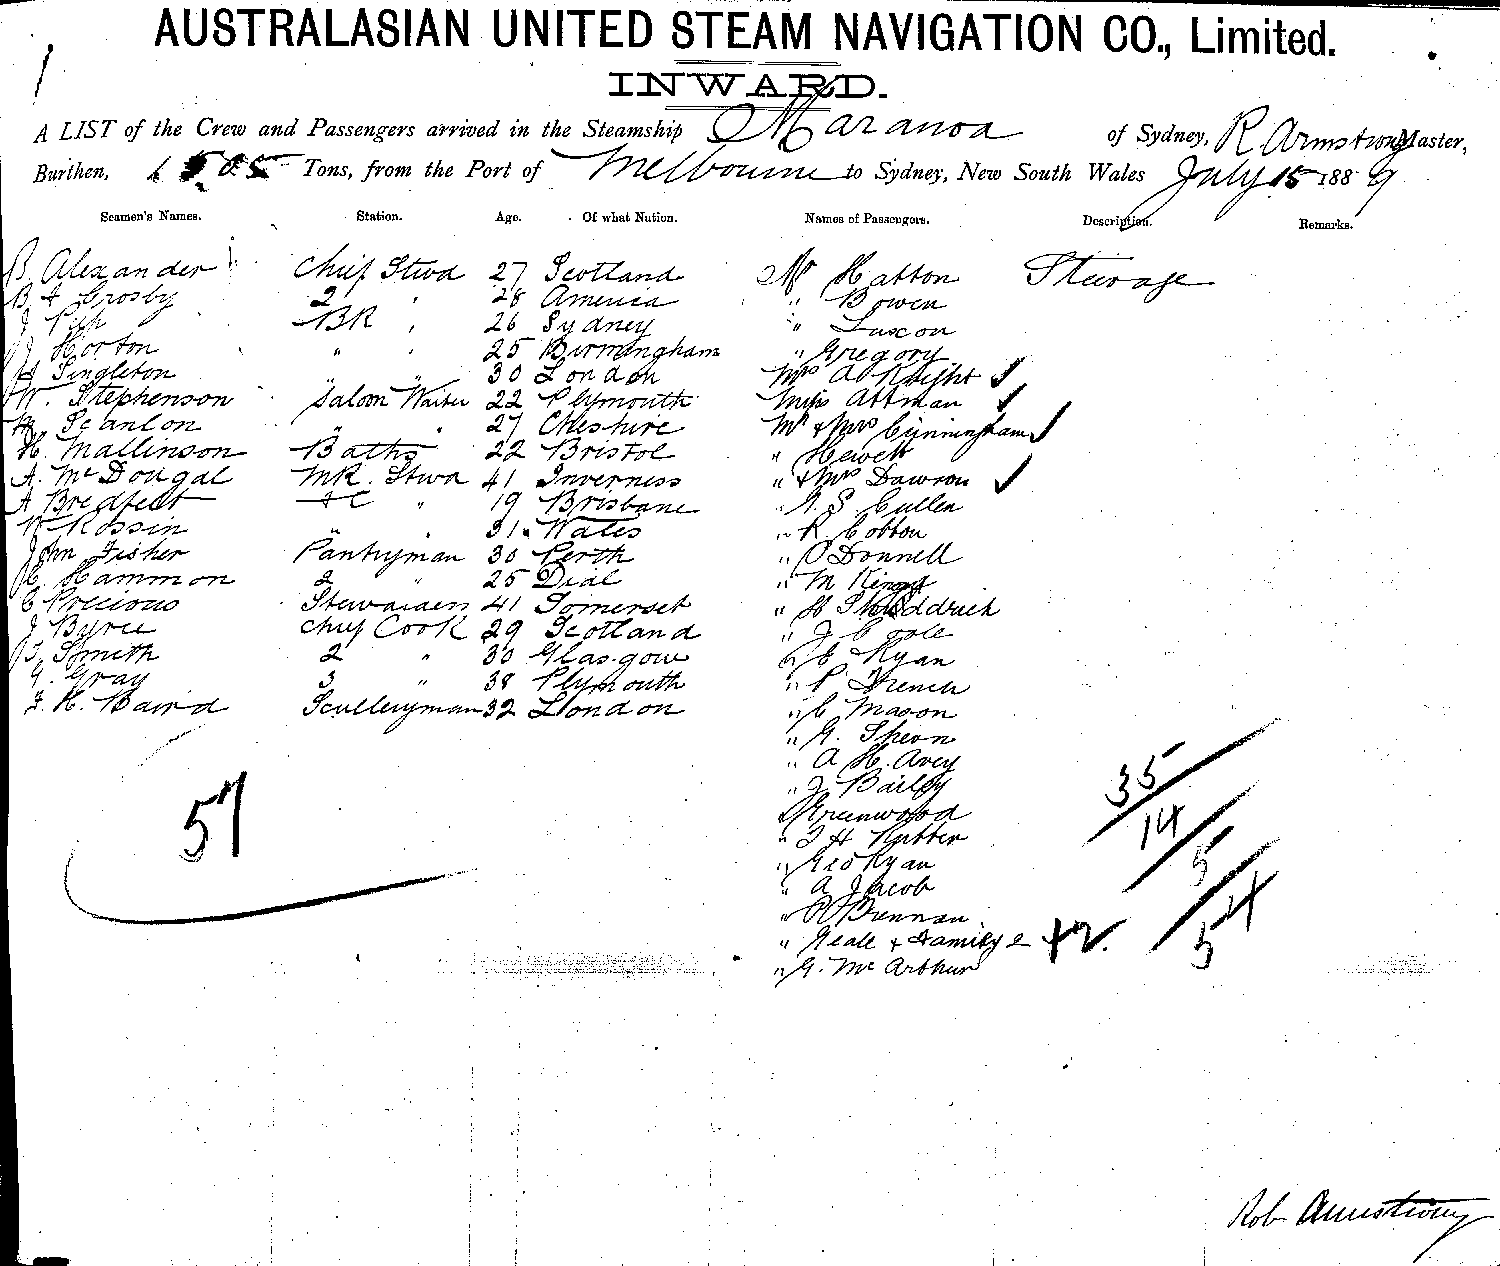 AUSTRALASIAN UNITED STEAM NAVIGATION CO., Limited.
INWARD.
A LIST of the Crew and Passengers arrived in the Steamship Maranoa of Sydney, R Armstrong Master,
Burthen, 1505 Tons, from the Port of Melbourne to Sydney, New South Wales July 15 1889
Seamen's Names. Station. Age. Of what Nation. Names of Passengers. Description. Remarks.
B. Alexander Chief Stwd 27 Scotland Mr Hatton Steerage
Crosby 2 " 28 America " Bowen
J BR " 26 Sydney " Luxon
J. Horton " " 25 Birmingham " Gregory
Singleton " " 30 London Mrs A Knight ✓
W. Stephenson Saloon Waiter 22 Plymouth Miss Attman ✓
M. Scanlon " " 27 Cheshire Mr & Mrs Cunningham ✓
H. Mallinson Baths 22 Bristol " Hewett
A. McDougal MR. Stwd 41 Inverness " & Mrs Dawson ✓
A Bredfelt FC " 19 Brisbane " G. S. Cullen
W Rossin " " 31 Wales " R Cotton
John Fisher Pantryman 30 Perth " O'Donnell
H. Hammon 2 " 25 Deal " M King
C Precious Stewardess 41 Somerset " H
J Byrce Chief Cook 29 Scotland " J Coole
J. Smith 2 " 30 Glasgow " E Ryan
G. Gray 3 " 38 Plymouth " P French
F. H. Baird Sculleryman 32 London " C Mason
" G. Sheon
" A H. Avey
" J Bailey
" Greenwood
" J H Rutter
" Geo Ryan
" A Jacob
" Brennan
" Geale & Family 2 +2.
" G. McArthur
57
35/14/5/54
Rob Armstrong